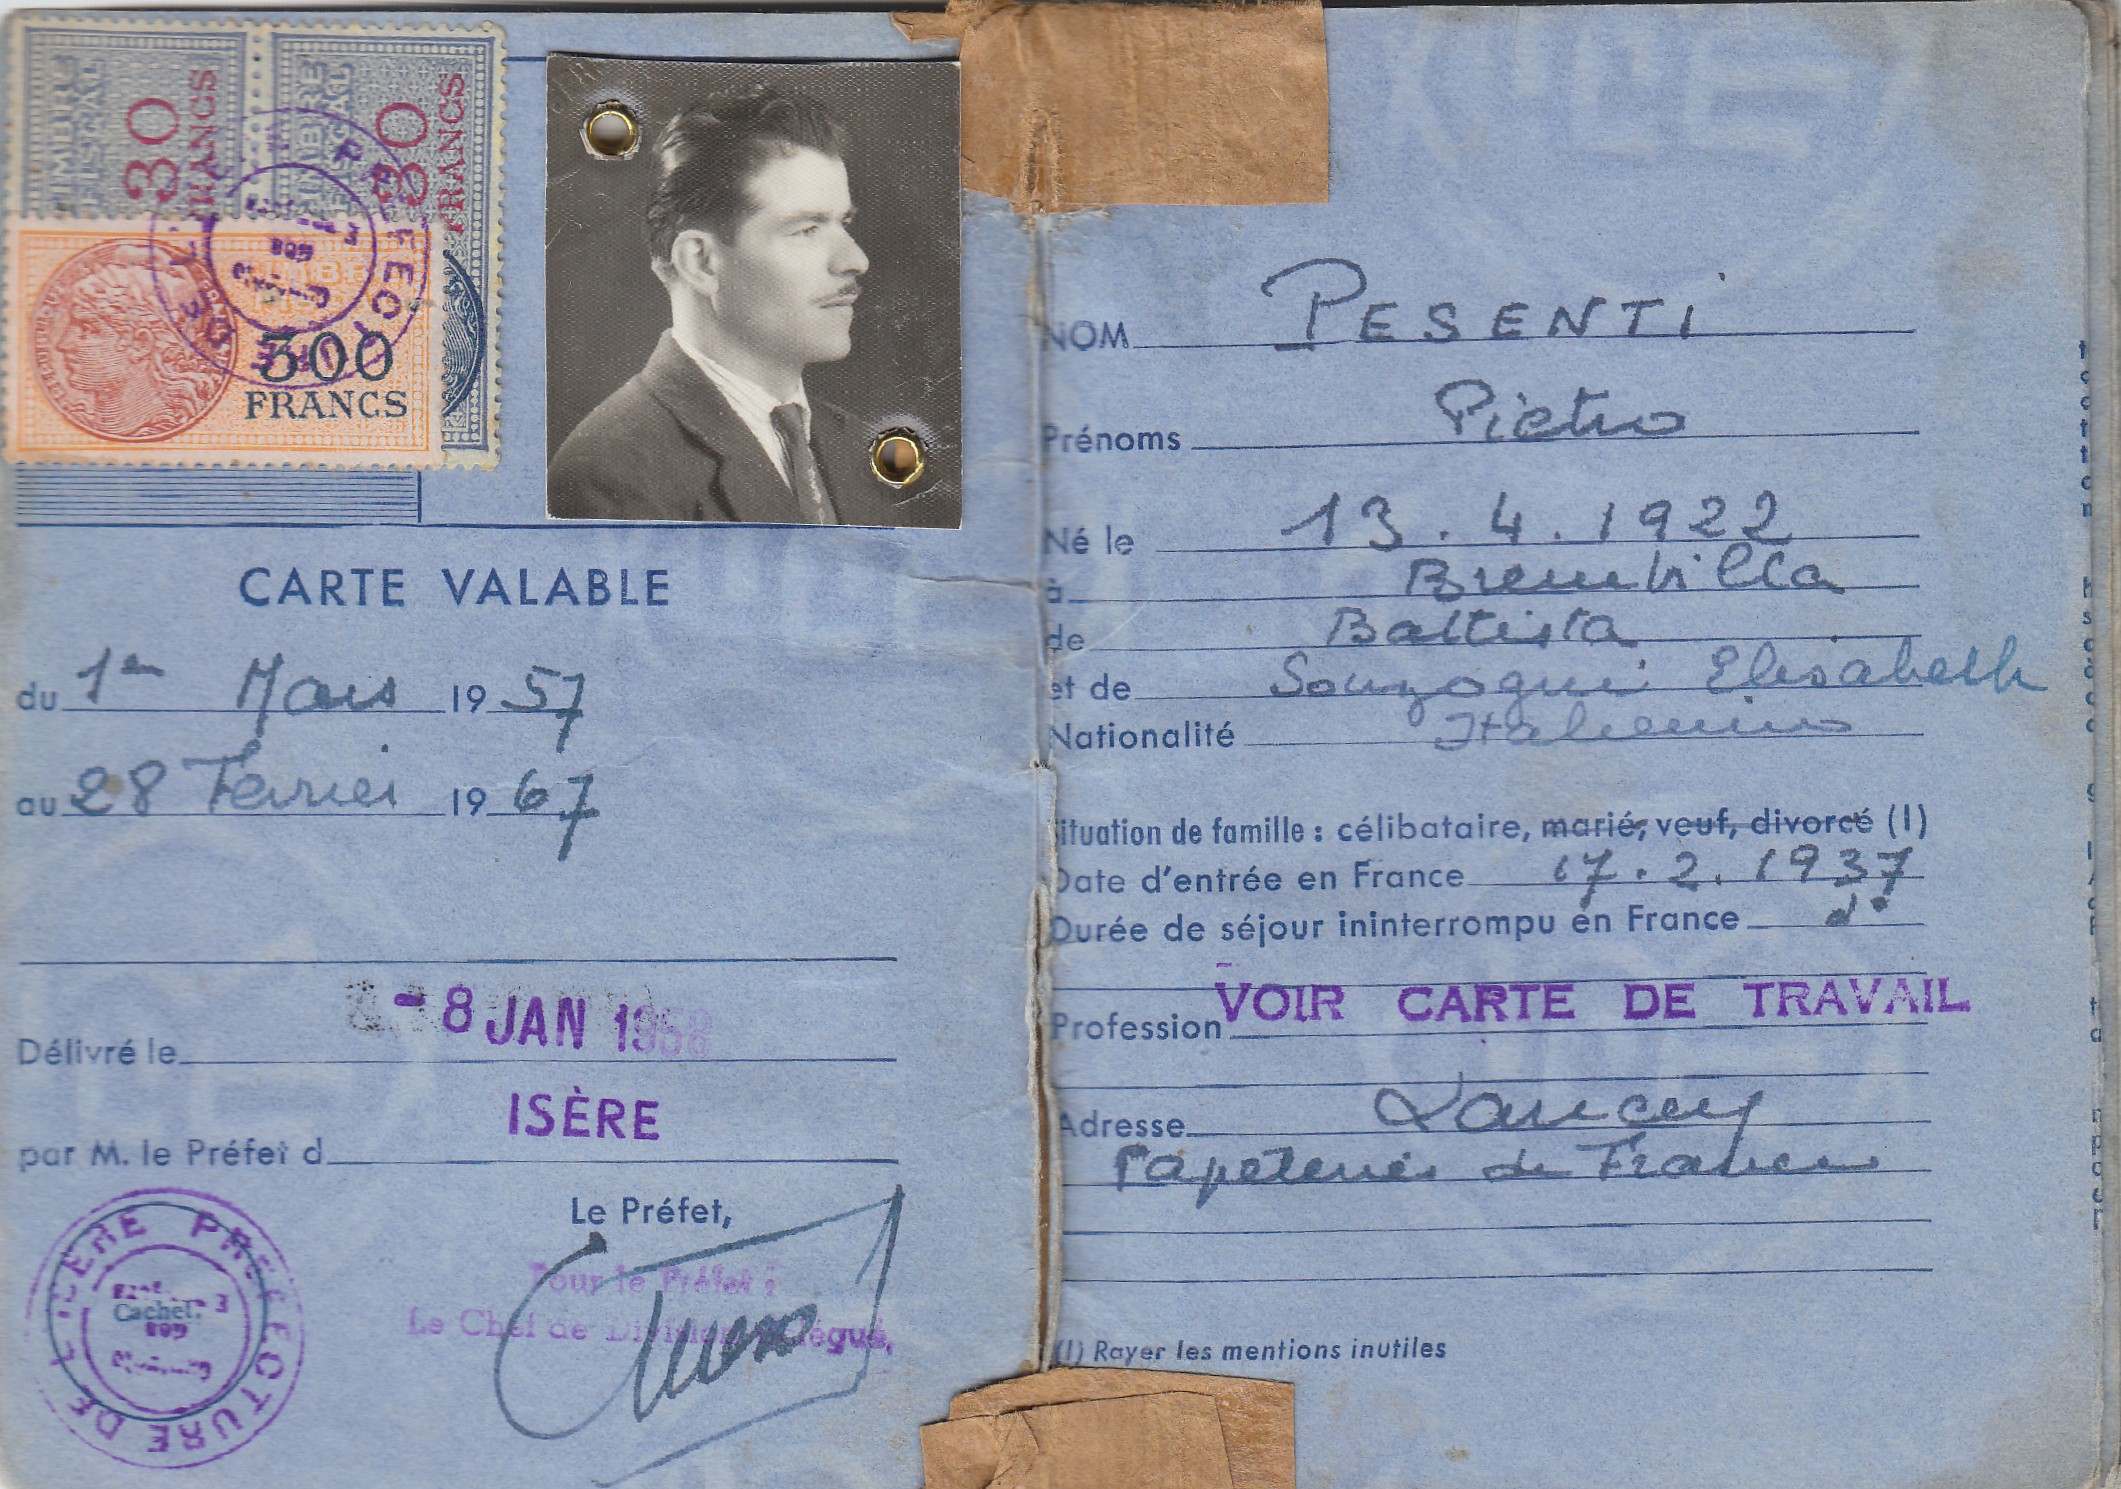 TIMBRE FISCAL
30 FRANCS
TIMBRE FISCAL
30 FRANCS
300
FRANCS
PRÉFECTURE DE L'ISÈRE
CARTE VALABLE
du 1er Mars 1957
au 28 Fevrier 1967
Délivré le - 8 JAN 1958
par M. le Préfet d ISÈRE
Le Préfet,
Pour le Préfet :
Le Chef de Division Délégué,
PRÉFECTURE DE L'ISÈRE
Cachet.
NOM PESENTI
Prénoms Pietro
Né le 13.4.1922
à Brembilla
de Battista
et de Sonzogni Elisabeth
Nationalité Italienne
Situation de famille : célibataire, marié, veuf, divorcé (1)
Date d'entrée en France 17.2.1937
Durée de séjour ininterrompu en France d°
Profession VOIR CARTE DE TRAVAIL
Adresse Lancey
Papeteries de France
(1) Rayer les mentions inutiles